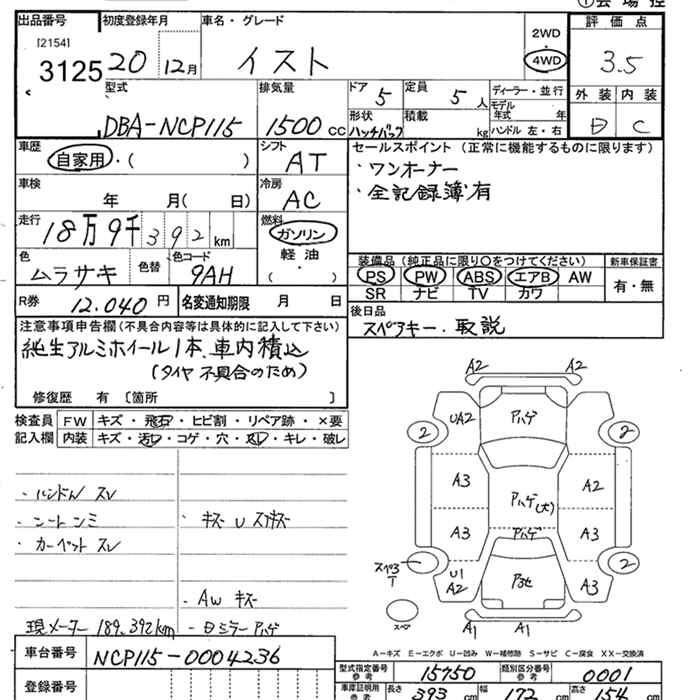 出品番号 初度登録年月 車名・グレード 評価点
[2154]
3125 20 12月 イスト 2WD 4WD 3.5
外装 内装
D C
型式 排気量 ドア 定員 ディーラー・並行
DBA-NCP115 1500cc 5 5人 モデル年式 年
形状 積載 ハンドル 左・右
ハッチバック kg
車歴 シフト セールスポイント (正常に機能するものに限ります)
自家用・( ) AT ・ワンオーナー
車検 冷房 ・全記録簿有
年 月( 日) AC
走行 燃料
18万9千392km ガソリン
色 色替 色コード 軽油 装備品(純正品に限り○をつけてください) 新車保証書
ムラサキ 9AH ・( ) PS PW ABS エアB AW 有・無
SR ナビ TV カワ
R券 12.040円 名変通知期限 月 日 後日品
スペアキー.取説
注意事項申告欄(不具合内容等は具体的に記入して下さい)
純生アルミホイール1本.車内積込
(タイヤ不具合のため)
修復歴 有〔箇所 〕
検査員 FW キズ・飛石・ヒビ割・リペア跡・×要
記入欄 内装 キズ・汚レ・コゲ・穴・スレ・キレ・破レ
・ハンドル スレ
・シートシミ ・キズ U スリキズ
・カーペット スレ
・AW キズ
現メーター 189.392km ・Dミラー アハゲ
A2 A2
UA2 アハゲ
2 2
A3 アハゲ(大) A2
A3 アハゲ A3
スペアキ U1 A2 アヨセ A3 2
スペア A1 A1
A-キズ E-エクボ U-凹み W-補修跡 S-サビ C-腐食 XX-交換済
車台番号 NCP115-0004236
型式指定番号 参考 15750 類別区分番号 参考 0001
登録番号 車庫証明用 参考 長さ 393cm 幅 172cm 高さ 154cm